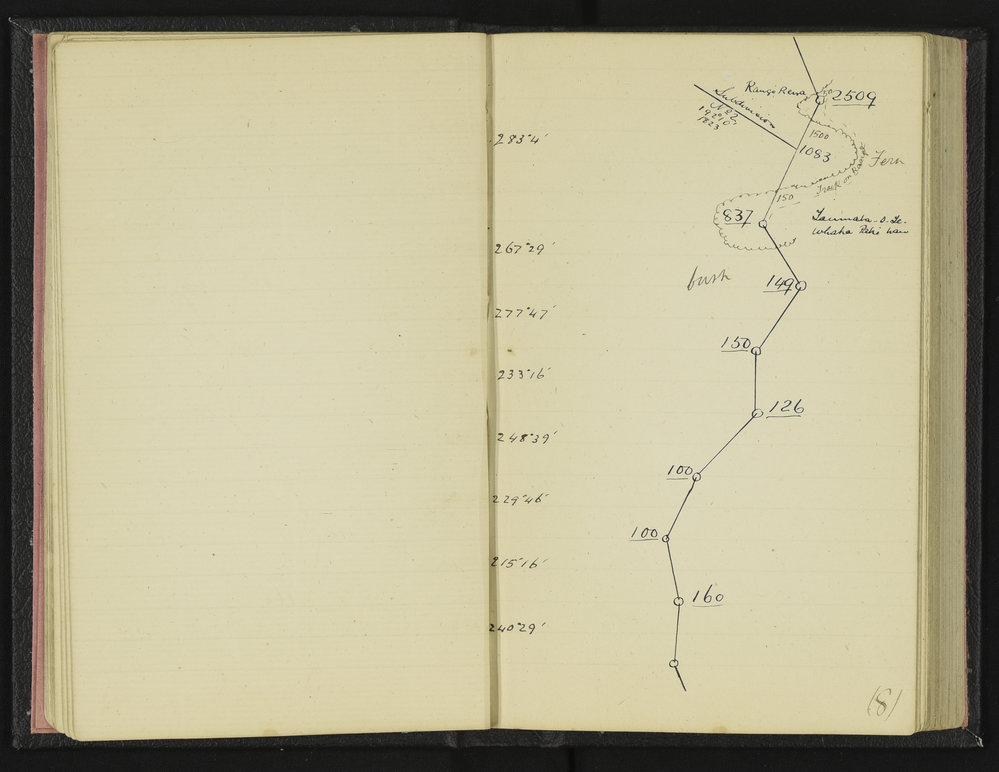 Rangi Rewa 2509
Subdivision
No 2
192°10'
1823
283°4'
1500
1083
Fern
Track on Range
150
837
Taumata-o-Te-
whaha
267°29'
bush
149
277°47'
150
233°16'
126
248°39'
100
229°46'
100
215°16'
160
240°29'
(8)